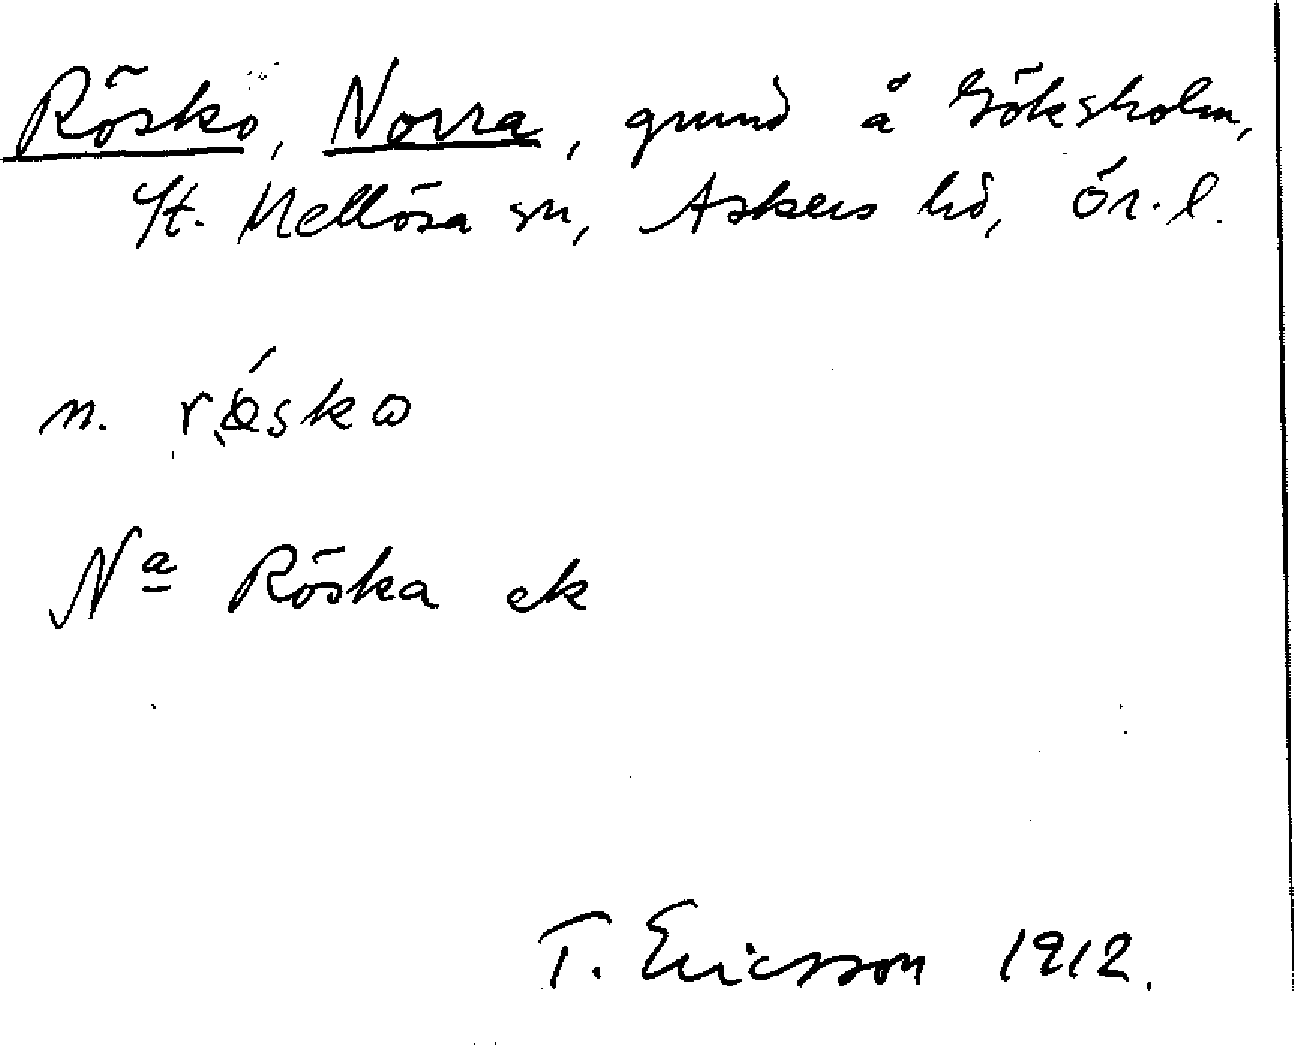 Röskö, Norra, grund å Göksholm,
St. Mellösa sn, Askers hd, Ör. l.
n. röskω
Nª Röska ek
T. Ericsson 1912.